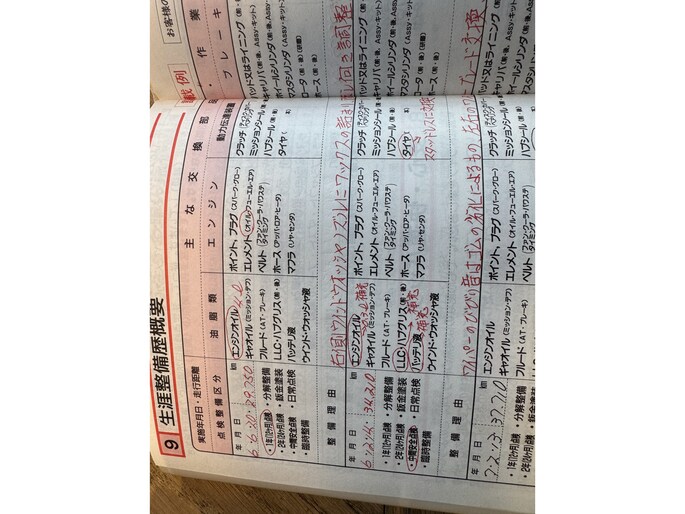 9 生涯整備歴概要
記載例
お客様の
実施年月日・走行距離
点検整備区分
主な交換部品
作業
油脂類
エンジン
動力伝達装置
ブレーキ
年 月 日 km
6・6・20・29,750
・1年(12か月)点検 ・分解整備
・2年(24か月)点検 ・鈑金塗装
・中間安全点検 ・日常点検
・臨時整備
エンジンオイル
ギヤオイル(ミッション・デフ)
フルード(AT・ブレーキ)
LLC・ハブグリス(前・後)
バッテリ液
ウインド・ウオッシャ液
ポイント、プラグ(スパーク・グロー)
エレメント(オイル・フューエル・エア)
ベルト
ホース(アッパ・ロア・ヒータ)
マフラ(リヤ・センタ)
クラッチ
ミッションシール
ハブシール(前・後)
タイヤ( 本)
パッド又はライニング(前・後)
キャリパ(前・後、Assy・キット)
ホイールシリンダ(前・後、Assy・キット)
マスタシリンダ(Assy・キット)
ロータ(前・後)(研磨)
ホース(前・後)
整備理由
右側ウインドウォッシャノズルにワックスの詰まり
向き調整
年 月 日 km
6・12・14・34,210
・1年(12か月)点検 ・分解整備
・2年(24か月)点検 ・鈑金塗装
・中間安全点検 ・日常点検
・臨時整備
エンジンオイル 補充
ギヤオイル(ミッション・デフ)
フルード(AT・ブレーキ)
LLC・ハブグリス(前・後)
補充
バッテリ液 補充
ウインド・ウオッシャ液
ポイント、プラグ(スパーク・グロー)
エレメント(オイル・フューエル・エア)
ベルト
ホース(アッパ・ロア・ヒータ)
マフラ(リヤ・センタ)
クラッチ
ミッションシール
ハブシール(前・後)
タイヤ( 本)
スタッドレスに交換
パッド又はライニング(前・後)
キャリパ(前・後、Assy・キット)
ホイールシリンダ(前・後、Assy・キット)
マスタシリンダ(Assy・キット)
ロータ(前・後)(研磨)
ホース(前・後)
整備理由
ワイパーのビビリ音はゴムの劣化によるもの 左右のブレード交換
年 月 日 km
37,710
・1年(12か月)点検 ・分解整備
・2年(24か月)点検 ・鈑金塗装
エンジンオイル
ギヤオイル(ミッション・デフ)
フルード(AT・ブレーキ)
ポイント、プラグ(スパーク・グロー)
エレメント(オイル・フューエル・エア)
ベルト
クラッチ
ミッションシール
ハブシール(前・後)
パッド又はライニング(前・後)